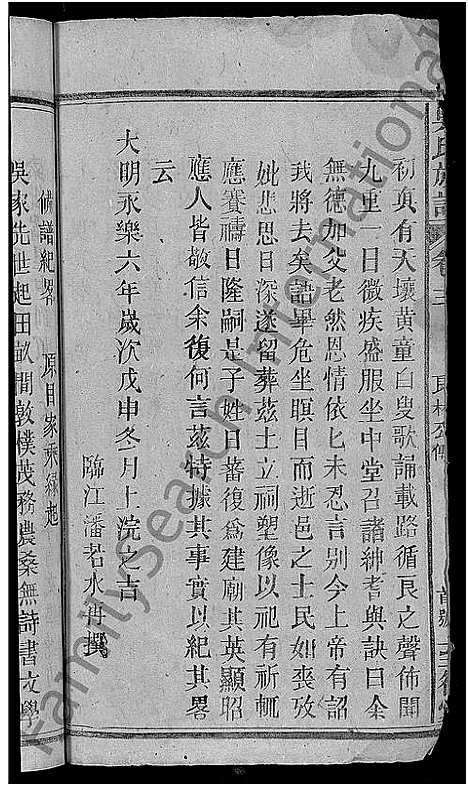 吳氏族譜 卷三 良材公傳 首號
初頂有天壤黃童白叟歌誦載路循良之聲佈聞
九重一日微疾盛服坐中堂召諸紳耆與訣曰余
無德加父老然恩情依匕未忍言別今上帝有詔
我將去矣語畢危坐瞑目而逝邑之士民如喪攷
妣悲思日深遂留葬茲土立祠塑像以祀有祈輒
應賽禱日隆嗣是子姓日蕃復為建廟其英顯昭
應人皆敬信余復何言茲特據其事實以紀其畧
云
大明永樂六年歲次戊申冬月上浣之吉
臨江潘若水丹撰
修譜紀畧 原目家乘緣起
吳家先世起田畝間敦樸茂務農桑無詩書文學
FamilySearch International